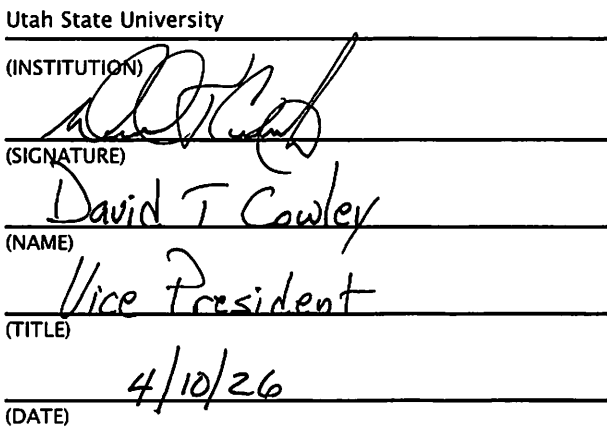 Utah State University
(INSTITUTION)
(SIGNATURE)
David T Cowley
(NAME)
Vice President
(TITLE)
4/10/26
(DATE)